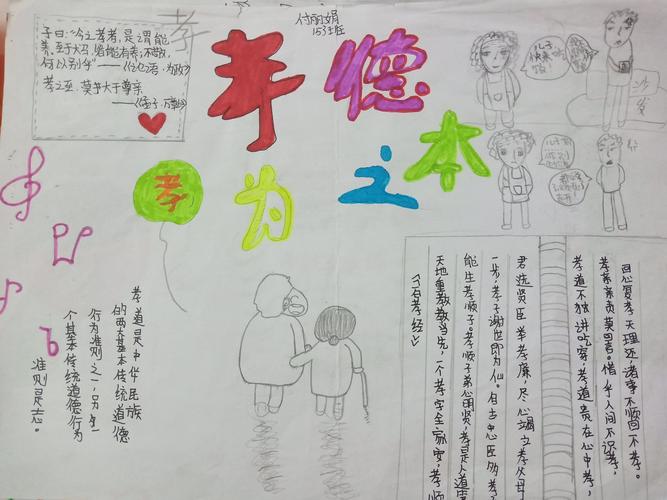 付丽娟
153班
孝
子曰:“今之孝者,是谓能
养,至于犬马,皆能有养;不敬,
何以别乎”——《论语·为政》
孝之至,莫乎大于尊亲
——《孟子·万章》
孝德
孝为之本
儿子
快来
吃饭
沙
发
孝道是中华民族
的两大基本传统道德
行为准则之一,另一
个基本传统道德行为
准则是忠。
回心复孝天理还,诸事不顺因不孝。
孝亲亲责莫回言。惜乎人间不识孝,
孝道不独讲吃穿,孝道贵在心中孝
君选贤臣举孝廉,尽心竭力孝父母
一步,孝子谢世即为仙。自古忠臣多孝子
能生孝顺子。孝顺子弟必明贤,孝是人道第
天地重孝孝当先,一个孝字全家安,孝顺
《百孝经》